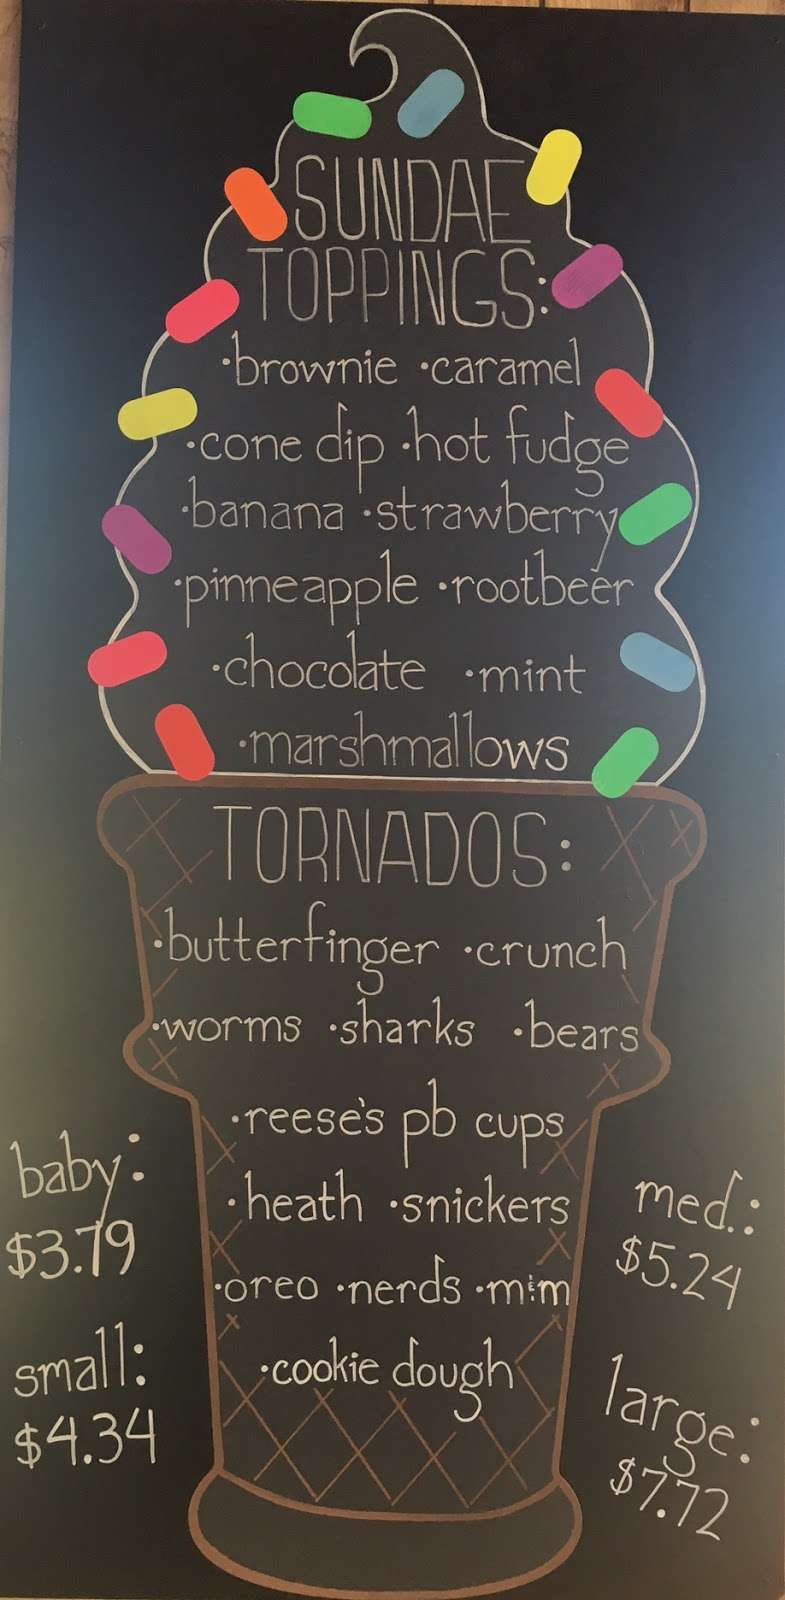 SUNDAE
TOPPINGS:
·brownie ·caramel
·cone dip ·hot fudge
·banana ·strawberry
·pinneapple ·rootbeer
·chocolate ·mint
·marshmallows
TORNADOS:
·butterfinger ·crunch
·worms ·sharks ·bears
·reese's pb cups
·heath ·snickers
·oreo ·nerds ·m&m
·cookie dough
baby:
$3.79
small:
$4.34
med.:
$5.24
large:
$7.72